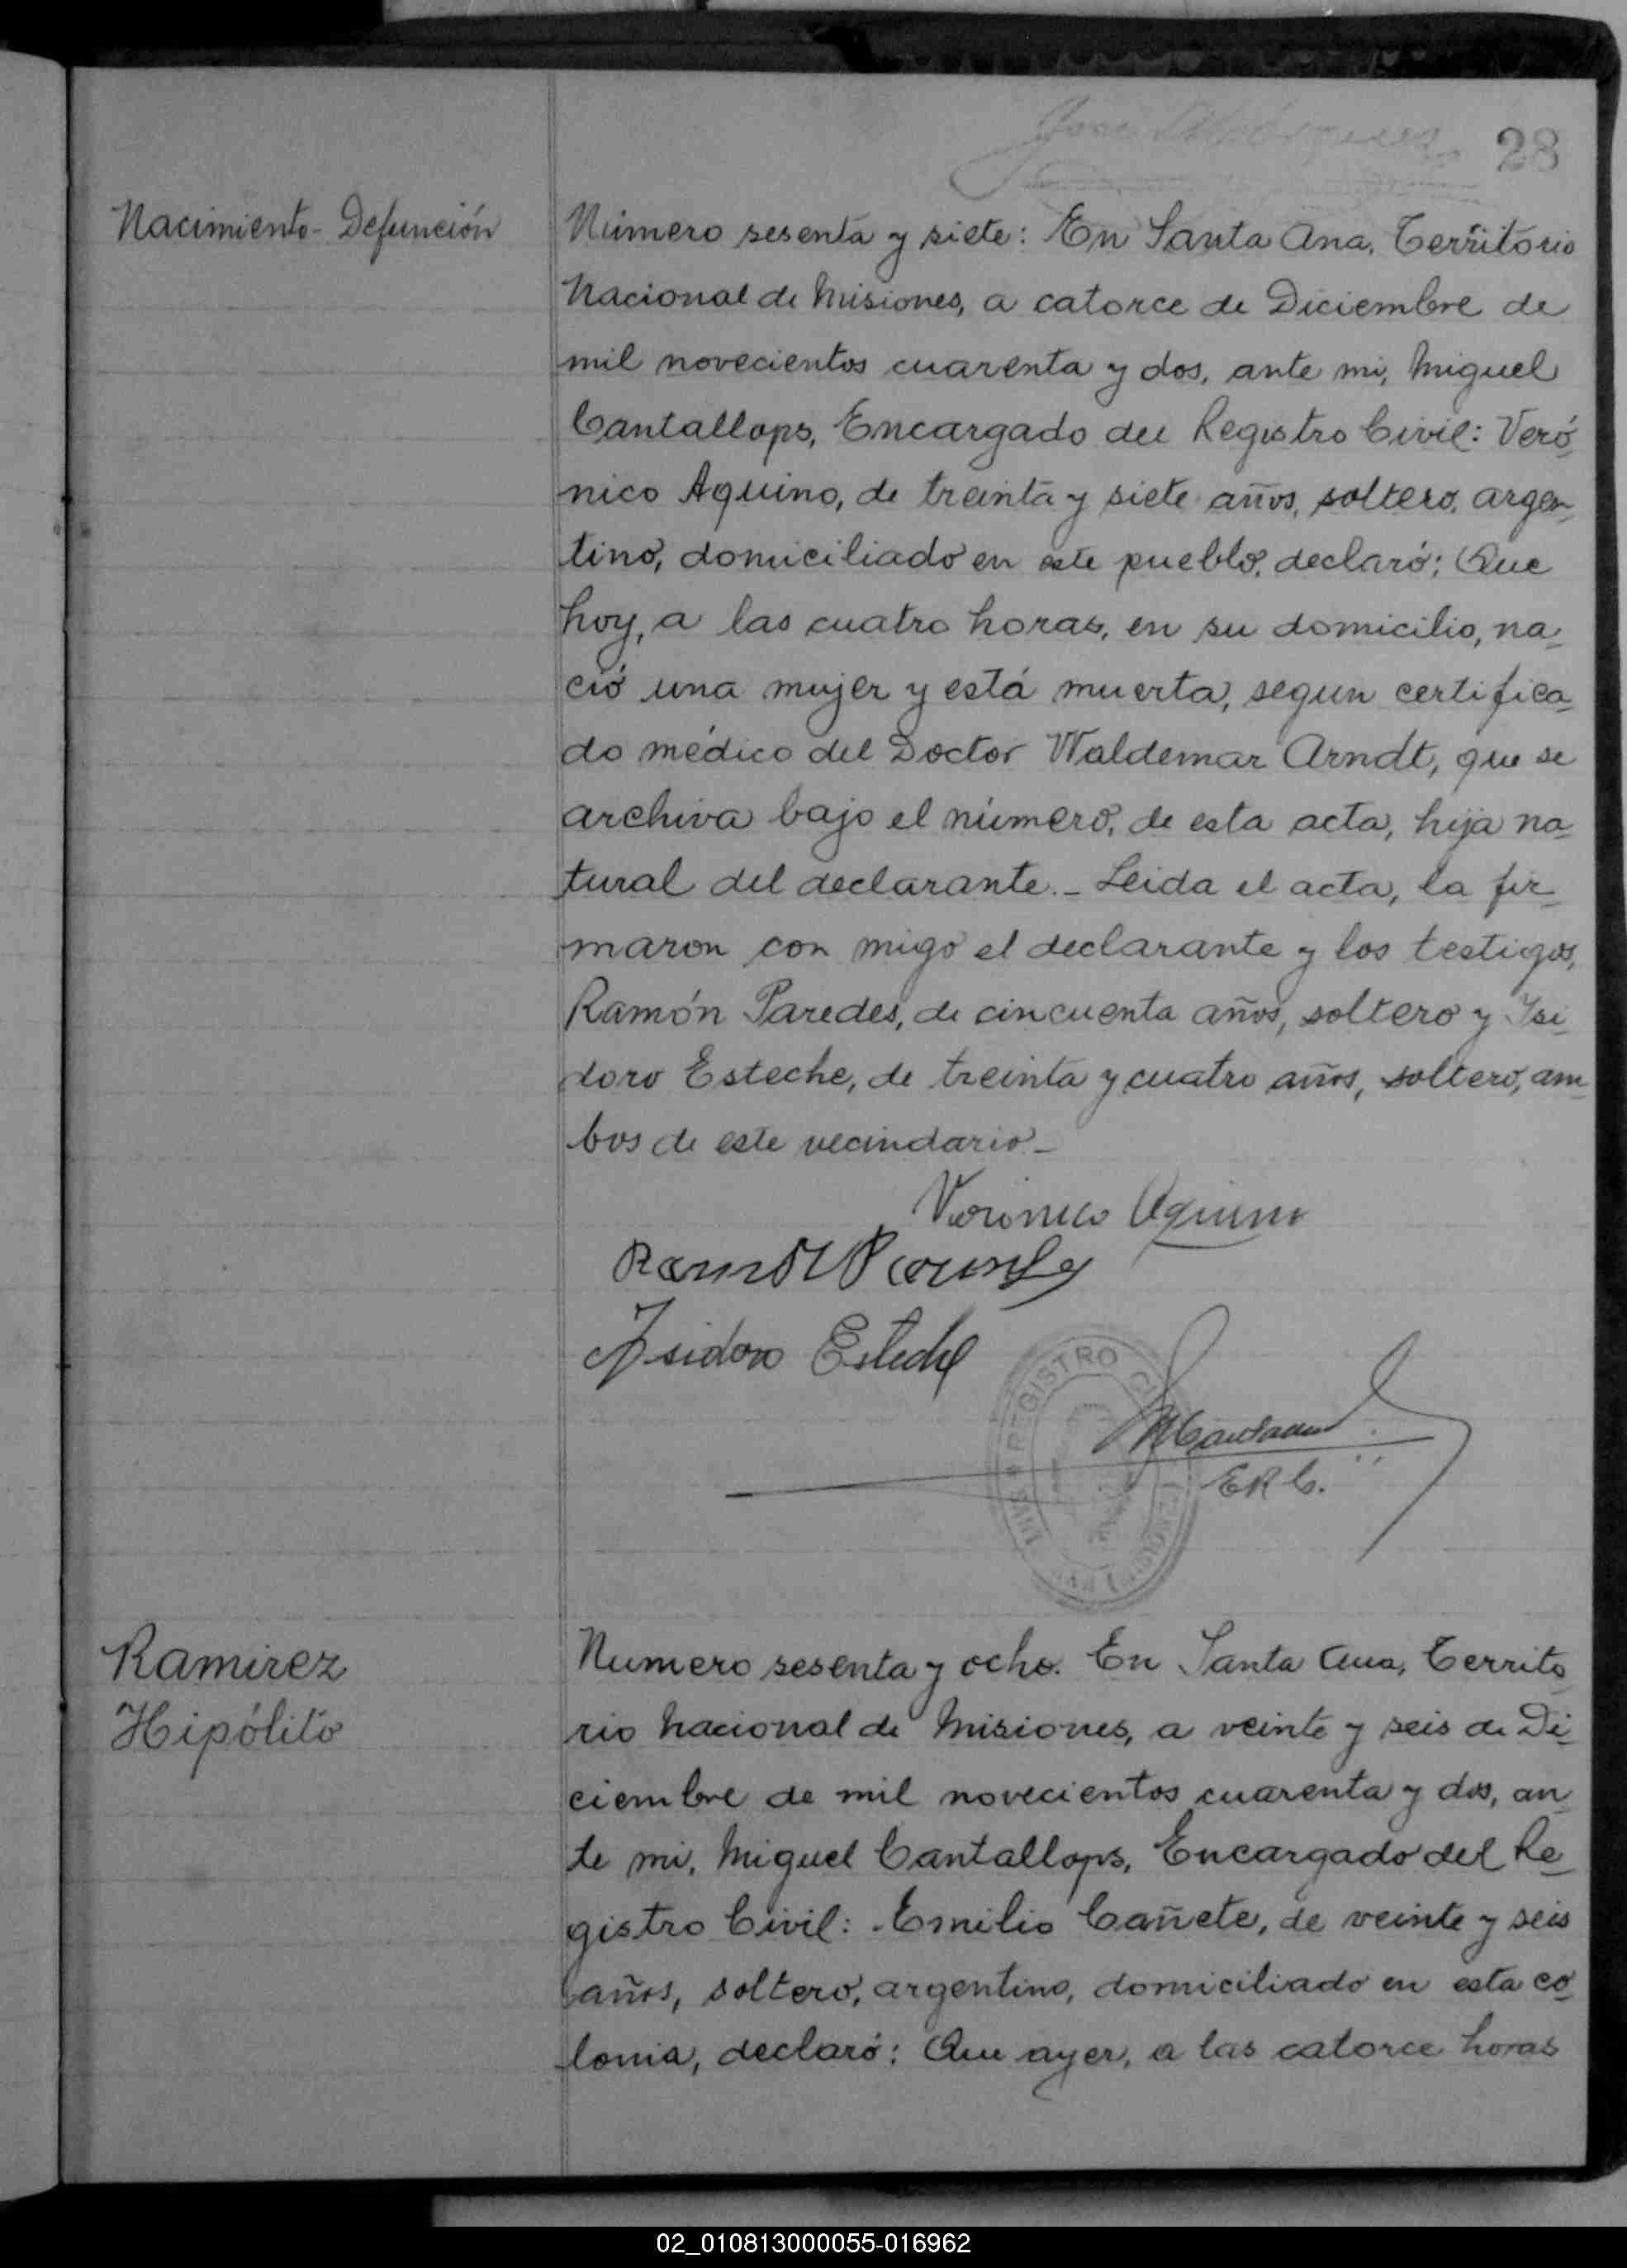 28
Nacimiento - Defunción
Número sesenta y siete: En Santa Ana, Territorio
Nacional de Misiones, a catorce de Diciembre de
mil novecientos cuarenta y dos, ante mi, Miguel
Cantallops, Encargado del Registro Civil: Veró-
nico Aquino, de treinta y siete años, soltero, argen-
tino, domiciliado en este pueblo, declaró; Que
hoy, a las cuatro horas, en su domicilio, na-
ció una mujer y está muerta, segun certifica-
do médico del Doctor Waldemar Arndt, que se
archiva bajo el número, de esta acta, hija na-
tural del declarante._ Leida el acta, la fir-
maron con migo el declarante y los testigos,
Ramón Paredes, de cincuenta años, soltero y Isi-
doro Esteche, de treinta y cuatro años, soltero, am-
bos de este vecindario_
Veronico Aquino
Ramon Paredes
Isidoro Esteche
REGISTRO
E R C.
Ramirez
Hipólito
Numero sesenta y ocho. En Santa Ana, Territo-
rio Nacional de Misiones, a veinte y seis de Di-
ciembre de mil novecientos cuarenta y dos, an-
te mi, Miguel Cantallops, Encargado del Re-
gistro Civil: Emilio Cañete, de veinte y seis
años, soltero, argentino, domiciliado en esta co-
lonia, declaró: Que ayer, a las catorce horas
02_010813000055-016962